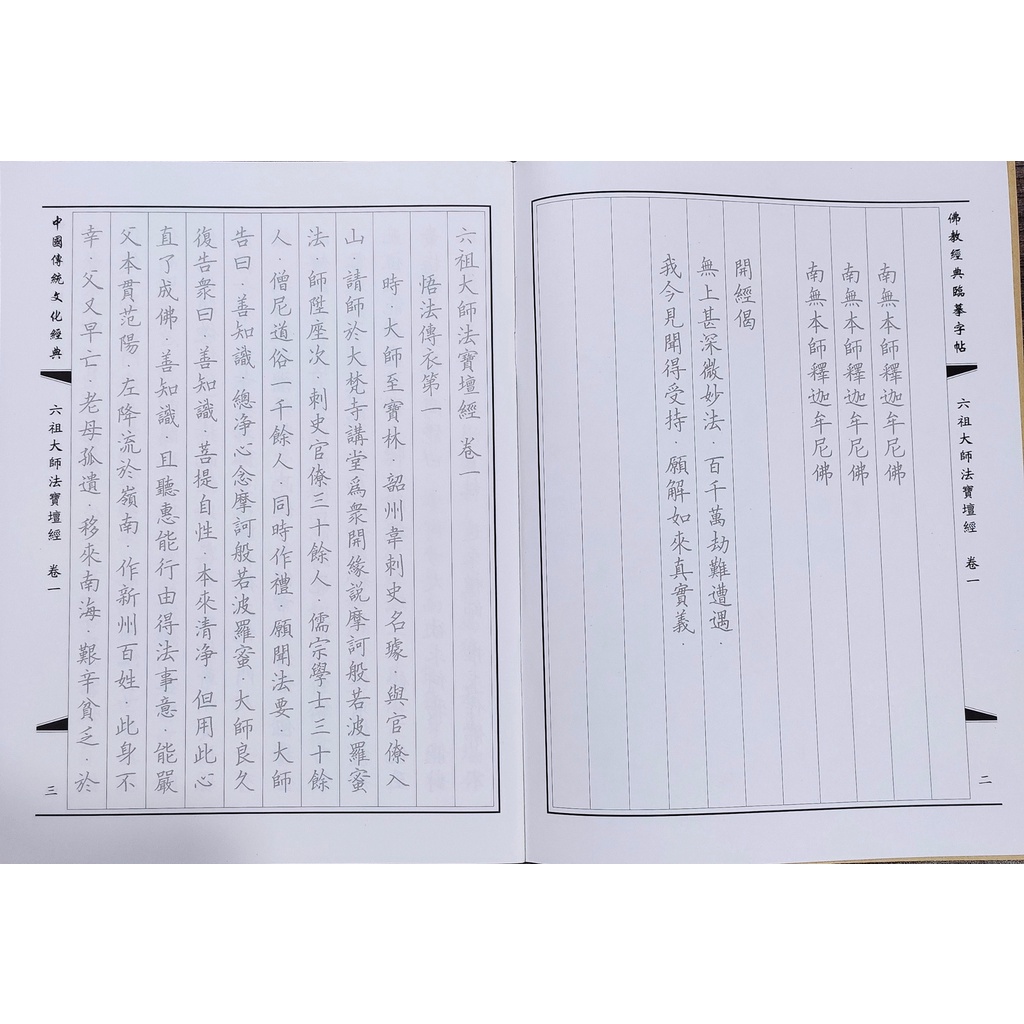 佛教經典臨摹字帖
六祖大師法寶壇經 卷一
二
南無本師釋迦牟尼佛
南無本師釋迦牟尼佛
南無本師釋迦牟尼佛
開經偈
無上甚深微妙法．百千萬劫難遭遇．
我今見聞得受持．願解如來真實義．
六祖大師法寶壇經 卷一
悟法傳衣第一
時．大師至寶林．韶州韋刺史名璩．與官僚入
山．請師於大梵寺講堂爲衆開緣説摩訶般若波羅蜜
法．師陞座次．刺史官僚三十餘人．儒宗學士三十餘
人．僧尼道俗一千餘人．同時作禮．願聞法要．大師
告曰．善知識．總淨心念摩訶般若波羅蜜．大師良久
復告衆曰．善知識．菩提自性．本來清净．但用此心
直了成佛．善知識．且聽惠能行由得法事意．能嚴
父本貫范陽．左降流於嶺南．作新州百姓．此身不
幸．父又早亡．老母孤遺．移來南海．艱辛貧乏．於
中國傳統文化經典
六祖大師法寶壇經 卷一
三